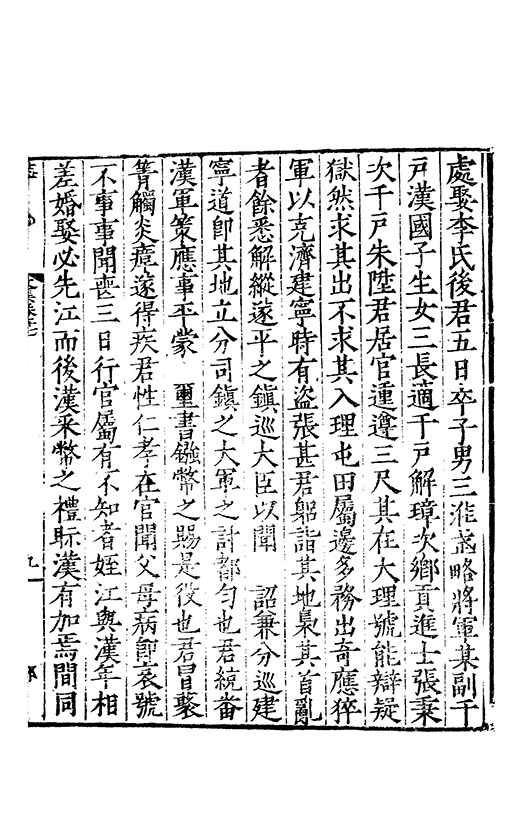 處娶李氏後君五日卒子男三淮武略將軍某副千
戸漢國子生女三長適千戸解璋次鄉貢進士張秉
次千戸朱陞君居官謹遵三尺其在大理號能辯疑
獄然求其出不求其入理屯田屬邊多務出奇應猝
軍以克濟建寧時有盗張甚君躬詣其地梟其首亂
者餘悉解縱遂平之鎮巡大臣以聞 詔兼分巡建
寧道即其地立分司鎮之大軍之討都勻也君統畨
漢軍策應事平蒙 璽書鏹幣之賜是役也君冒蓁
箐觸炎瘴遂得疾君性仁孝在官聞父母病即哀號
不事事聞喪三日行官屬有不知者姪江與漢年相
差婚娶必先江而後漢采幣之禮眎漢有加焉間同
九